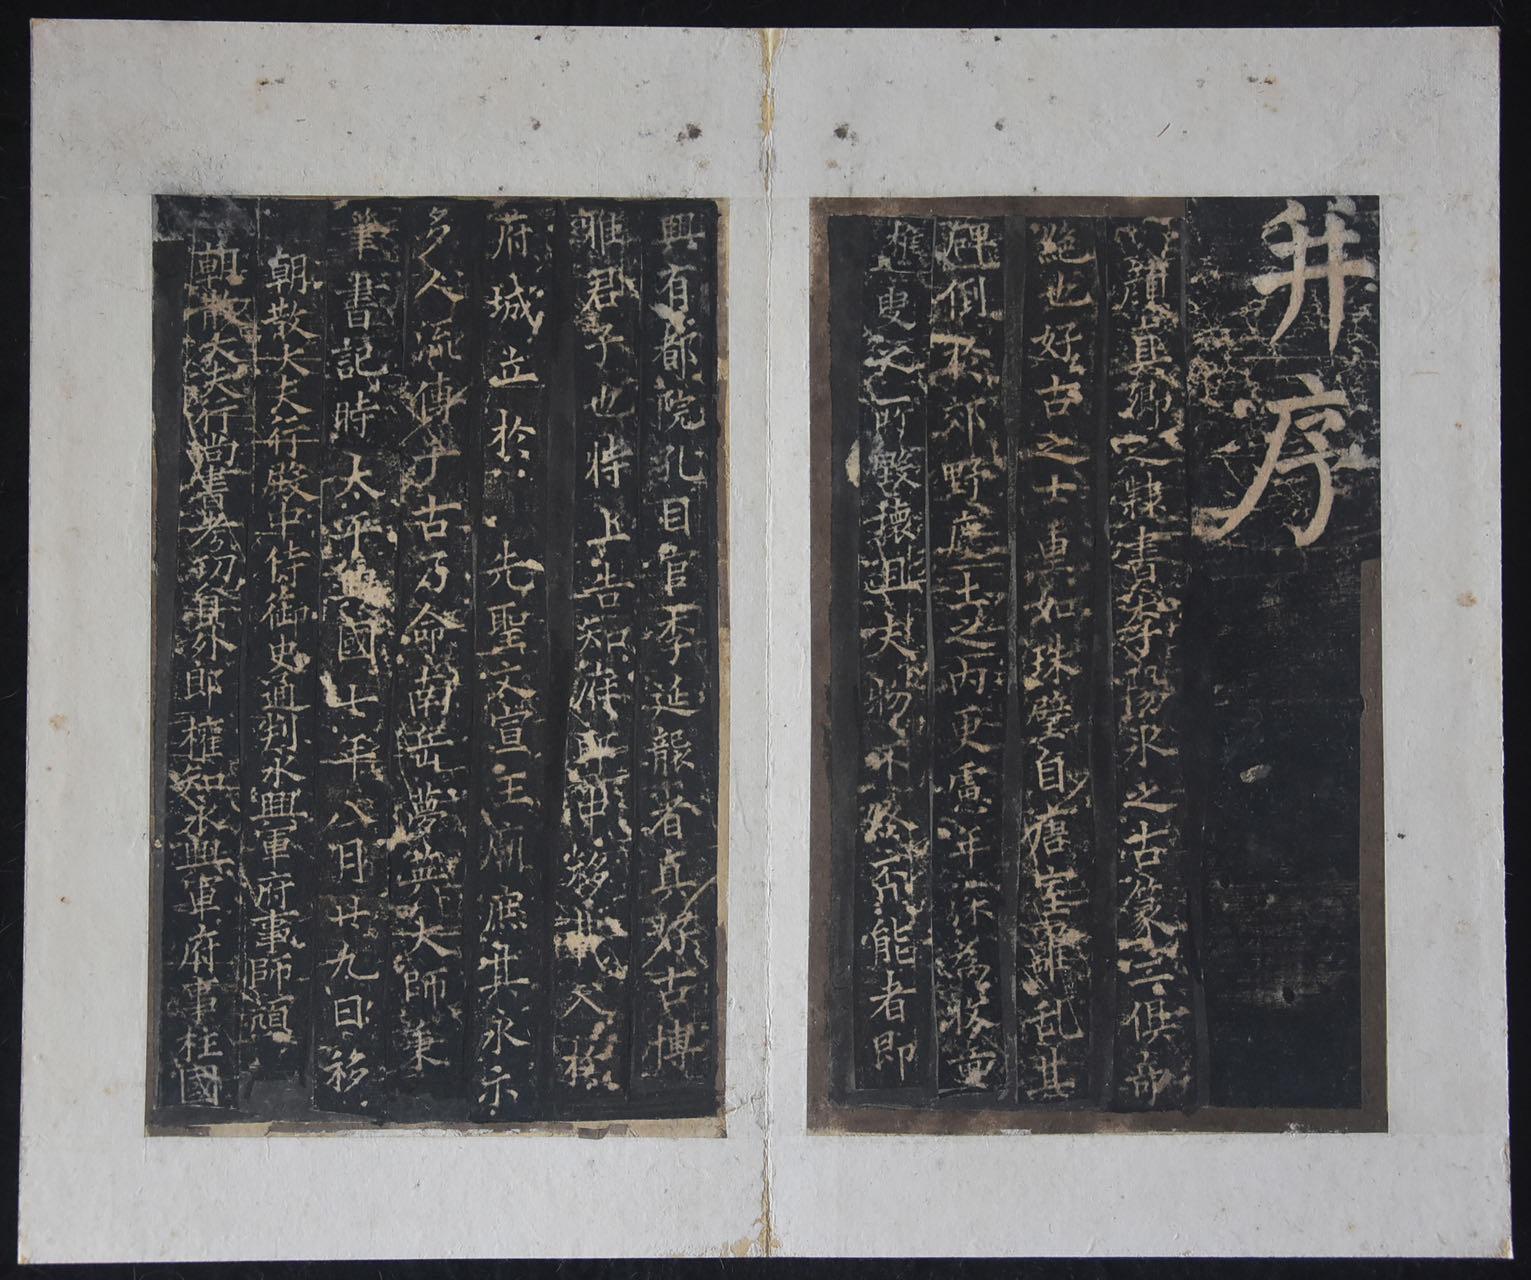 并序
顏真卿之隸書李陽冰之古篆二俱奇
絕也好古之士重如珠璧自唐室離乱其
碑倒於郊野塵土之內更慮年深為牧童
樵叟之所毀壞且夫物不終否能者即
興有都院孔目官李延襲者真好古博
雅君子也特上告知府郎中移載入於
府城立於先聖文宣王廟庶其永示
多人流傳千古乃命南岳夢英大師秉
筆書記時太平興國七年八月廿九日移
朝散大夫行殿中侍御史通判永興軍府事師頏
朝散大夫行尚書考功員外郎權知永興軍府事柱國